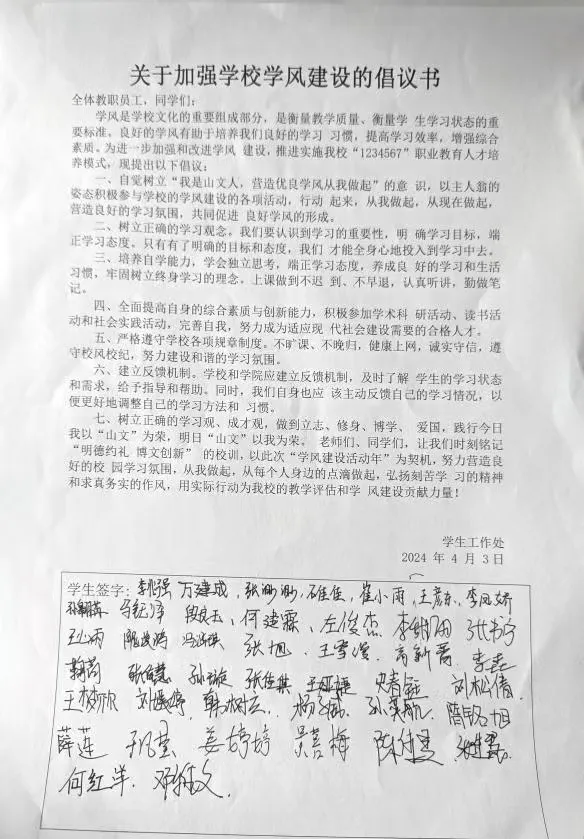 关于加强学校学风建设的倡议书
全体教职员工，同学们：
学风是学校文化的重要组成部分，是衡量教学质量、衡量学 生学习状态的重
要标准。良好的学风有助于培养我们良好的学习 习惯，提高学习效率，增强综合
素质。为进一步加强和改进学风 建设，推进实施我校“1234567”职业教育人才培
养模式，现提出以下倡议：
一、自觉树立“我是山文人，营造优良学风从我做起”的意 识，以主人翁的
姿态积极参与学校的学风建设的各项活动，行动 起来，从我做起，从现在做起，
营造良好的学习氛围，共同促进 良好学风的形成。
二、树立正确的学习观念。我们要认识到学习的重要性，明 确学习目标，端
正学习态度。只有有了明确的目标和态度，我们 才能全身心地投入到学习中去。
三、培养自学能力，学会独立思考，端正学习态度，养成良 好的学习和生活
习惯，牢固树立终身学习的理念。上课做到不迟 到、不早退，认真听讲，勤做笔
记。
四、全面提高自身的综合素质与创新能力，积极参加学术科 研活动、读书活
动和社会实践活动，完善自我，努力成为适应现 代社会建设需要的合格人才。
五、严格遵守学校各项规章制度。不旷课、不晚归，健康上网，诚实守信，遵
守校风校纪，努力建设和谐的学习氛围。
六、建立反馈机制。学校和学院应建立反馈机制，及时了解 学生的学习状态
和需求，给予指导和帮助。同时，我们自身也应 该主动反馈自己的学习情况，以
便更好地调整自己的学习方法和 习惯。
七、树立正确的学习观、成才观，做到立志、修身、博学、 爱国，践行今日
我以“山文”为荣，明日“山文”以我为荣。 老师们、同学们，让我们时刻铭记
“明德约礼 博文创新” 的校训，以此次“学风建设活动年”为契机，努力营造良
好的校 园学习氛围，从我做起，从每个人身边的点滴做起，弘扬刻苦学 习的精神
和求真务实的作风，用实际行动为我校的教学评估和学 风建设贡献力量！
学生工作处
2024 年 4 月 3 日
学生签字： 万建成 崔小雨 王彦东 李凤娇
段良玉 何建霖 左俊杰
张旭 王雪滢 高新茜
孙璇 张佳琪 刘松倩
王梦欣 孙英航 隋铭旭
薛莲 姜婷婷 吴喜梅
何红洋